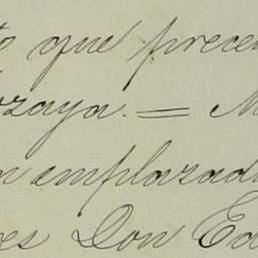 que prece
zaya. = M
emplazad
es Don Ed